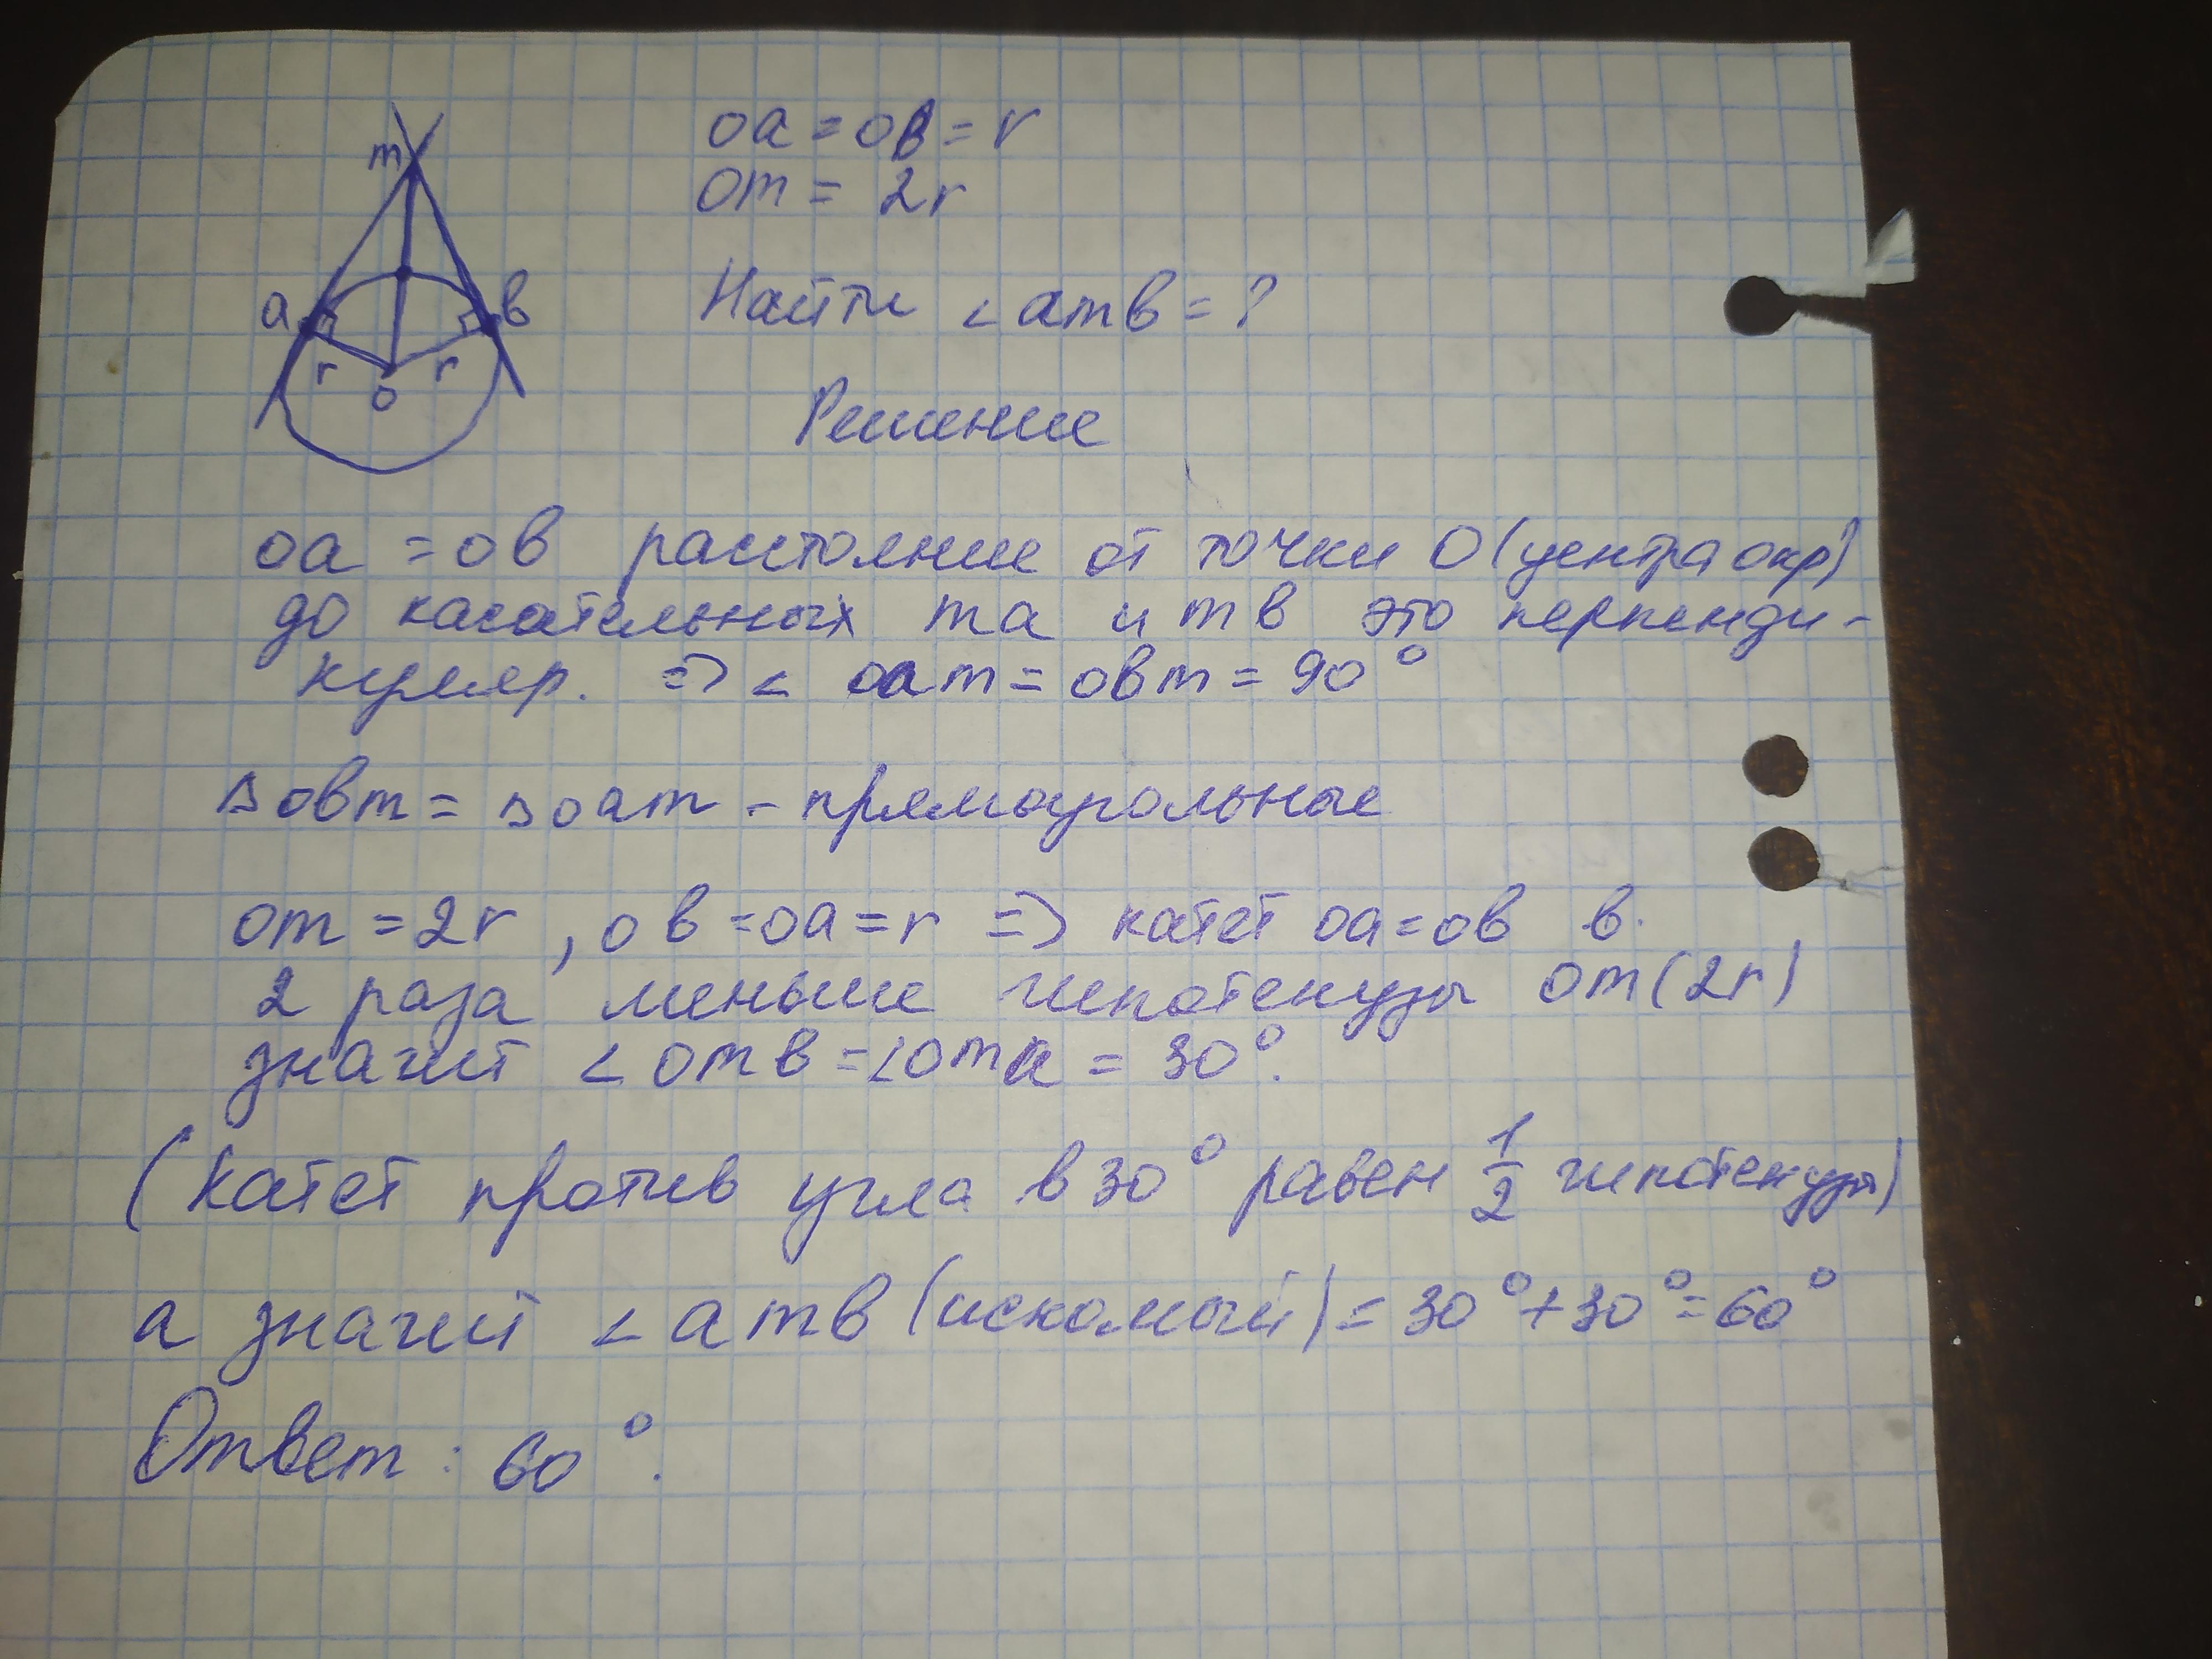 m
a
в
r
r
o
oa = oв = r
om = 2r
Найти < amв = ?
Решение
oa = oв расстояние от точки O (центра окр)
до касательных ma и mв это перпенди-
куляр. => < oam = oвm = 90°
∆ oвm = ∆ oam - прямоугольные
om = 2r , oв = oa = r => катет oa = oв в
2 раза меньше гипотенузы om (2r)
значит < omв = < oma = 30°.
(катет против угла в 30° равен 1/2 гипотенузы)
а значит < amв (искомый) = 30° + 30° = 60°
Ответ : 60°.